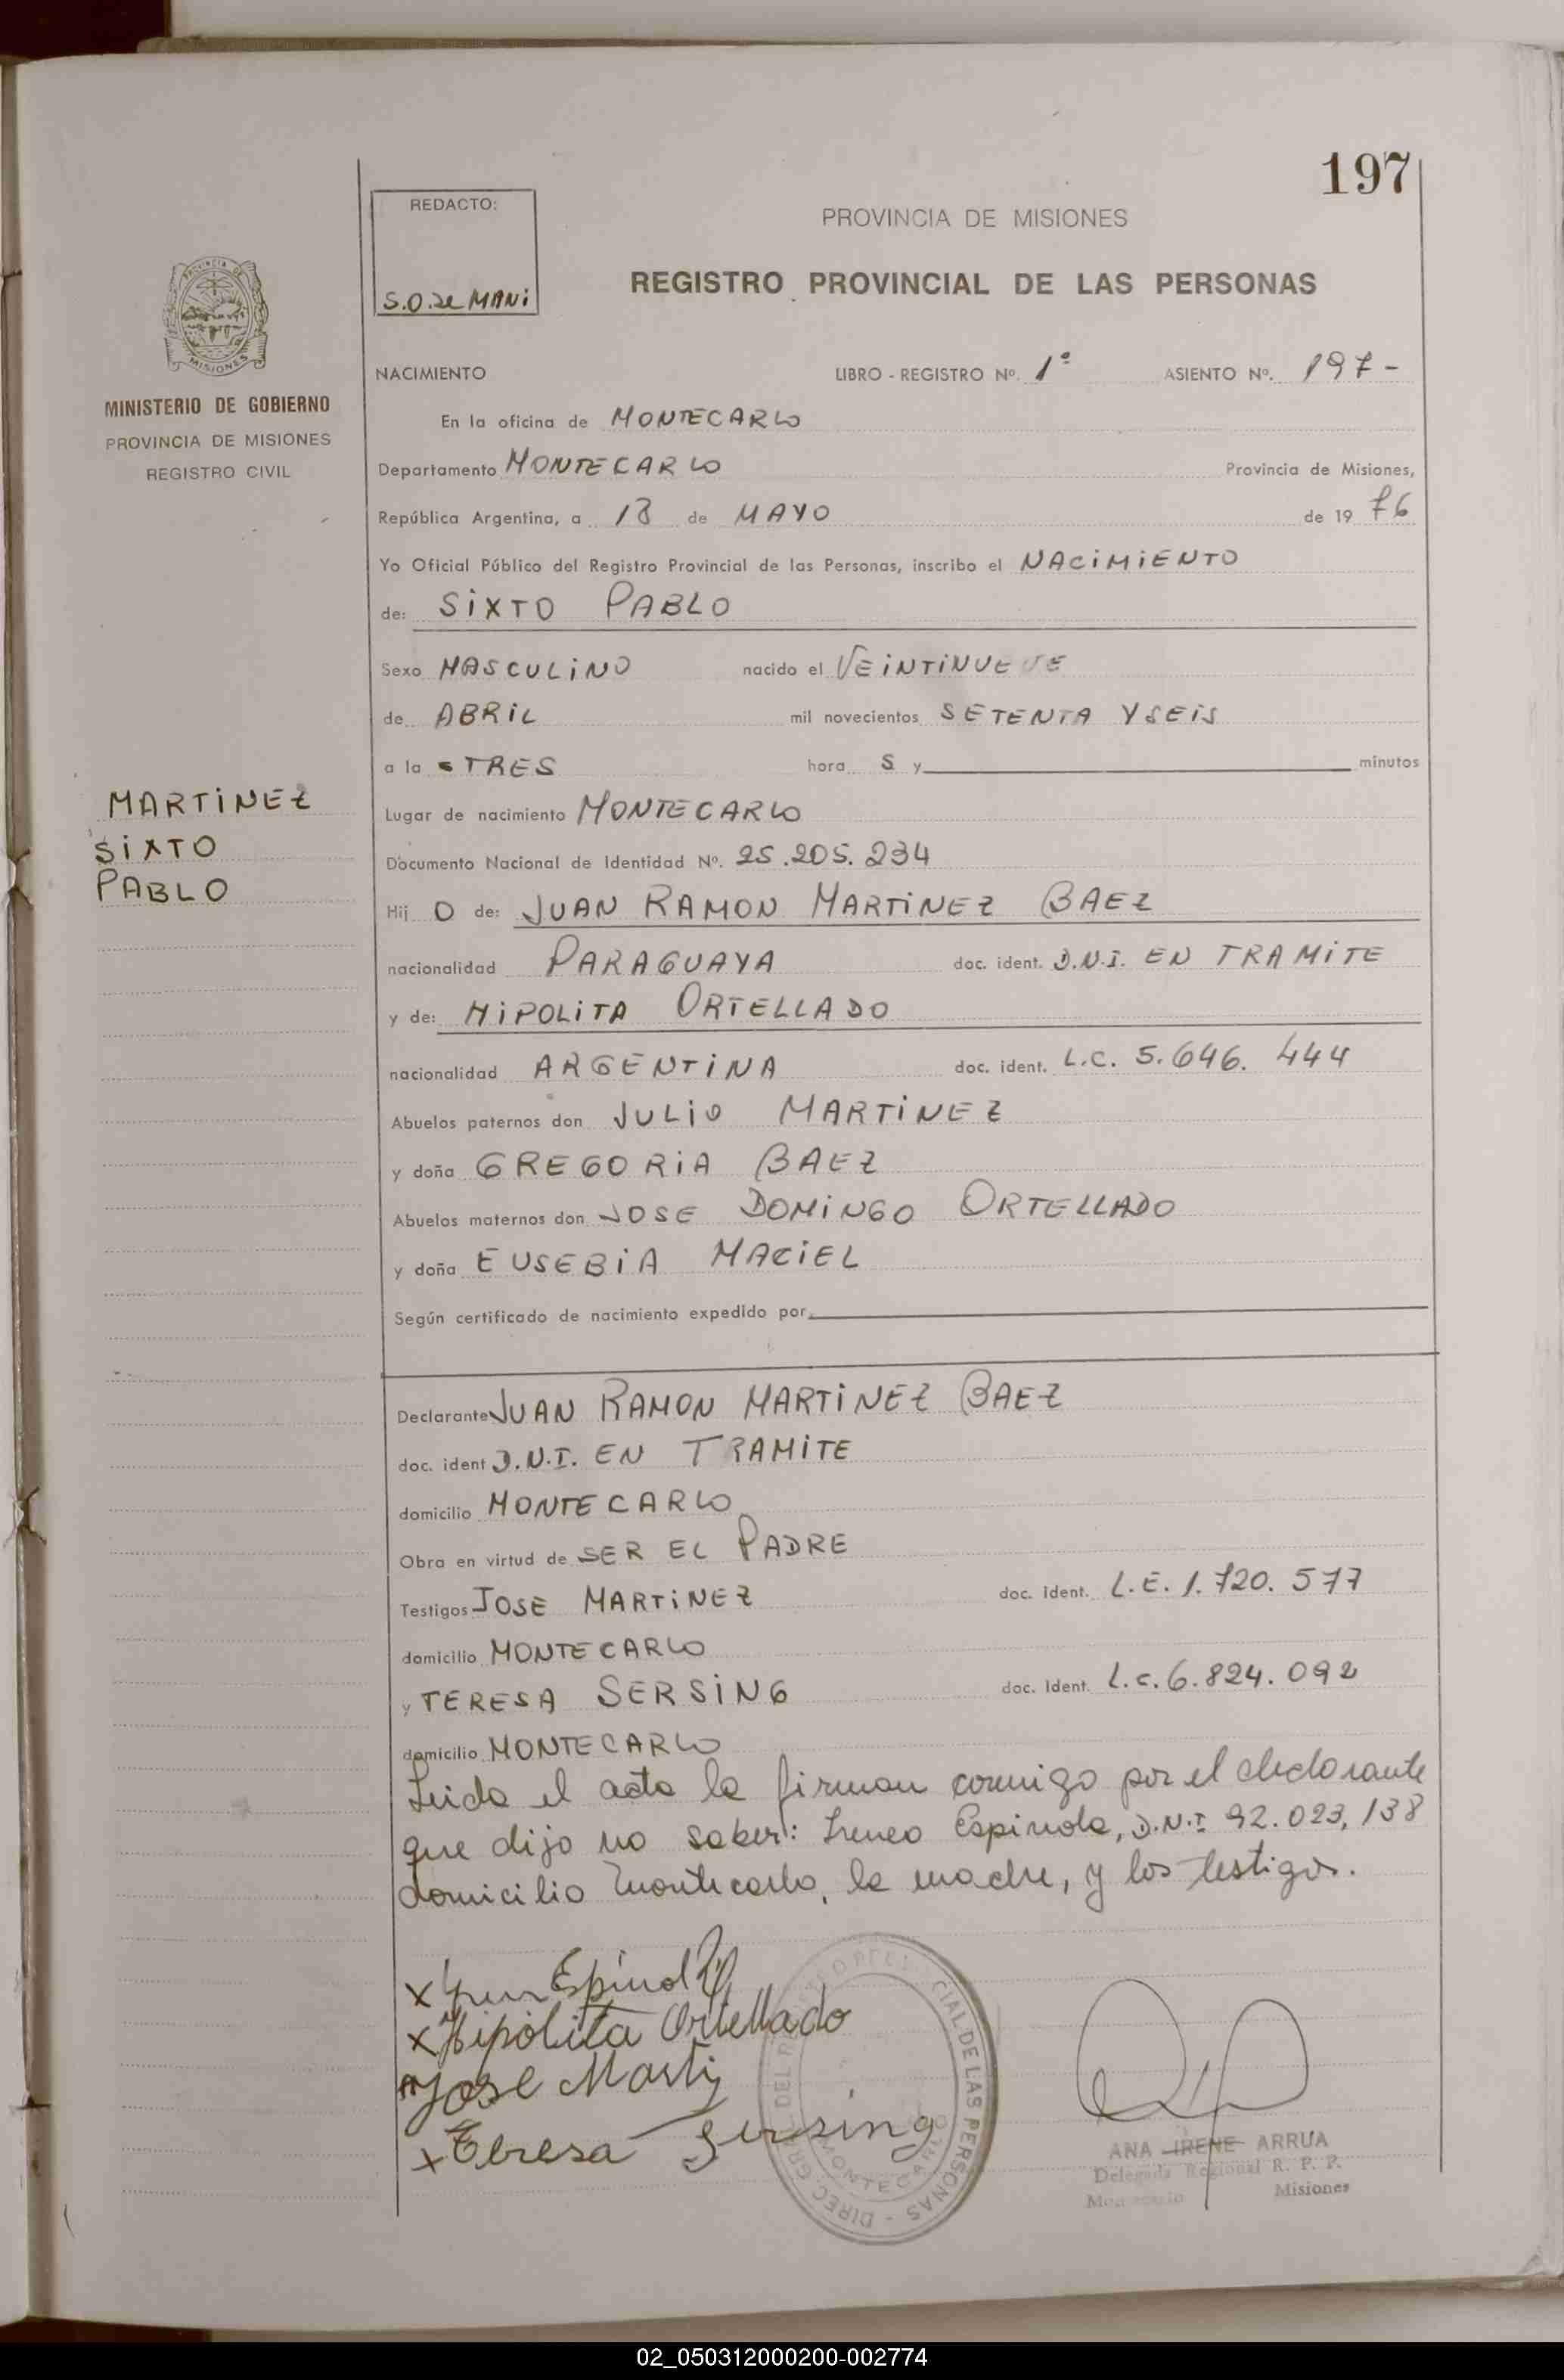 197
REDACTO:
S.O. de MANi
PROVINCIA DE MISIONES
REGISTRO PROVINCIAL DE LAS PERSONAS
MISIONES
MINISTERIO DE GOBIERNO
PROVINCIA DE MISIONES
REGISTRO CIVIL
NACIMIENTO LIBRO - REGISTRO Nº. 1º ASIENTO Nº. 197-
En la oficina de MONTECARLO
Departamento MONTECARLO Provincia de Misiones,
República Argentina, a 18 de MAYO de 19 76
Yo Oficial Público del Registro Provincial de las Personas, inscribo el NACiMiENTO
de: SiXTO PABLO
Sexo MASCULiNO nacido el VEiNTiNUEVE
de ABRiL mil novecientos SETENTA Y SEiS
a la S TRES hora S y minutos
Lugar de nacimiento MONTECARLO
MARTiNEZ
SiXTO
PABLO
Documento Nacional de Identidad Nº. 25.205.234
Hij O de: JUAN RAMON MARTiNEZ BAEZ
nacionalidad PARAGUAYA doc. ident. D.N.I. EN TRAMiTE
y de: HiPOLiTA ORTELLADO
nacionalidad ARGENTiNA doc. ident. L.C. 5.646.444
Abuelos paternos don JULiO MARTiNEZ
y doña GREGORiA BAEZ
Abuelos maternos don JOSE DOMiNGO ORTELLADO
y doña EUSEBiA MACiEL
Según certificado de nacimiento expedido por
Declarante JUAN RAMON MARTiNEZ BAEZ
doc. ident D.N.I. EN TRAMiTE
domicilio MONTECARLO
Obra en virtud de SER EL PADRE
Testigos JOSE MARTiNEZ doc. ident. L.E. 1.720.577
domicilio MONTECARLO
y TERESA SERSiNG doc. Ident. L.C. 6.824.092
domicilio MONTECARLO
Leida el acta la firman conmigo por el declarante
que dijo no saber: Ireneo Espinola, D.N.I 92.023,138
domicilio Montecarlo, la madre, y los testigos.
x Espinola
x Hipólita Ortellado
Jose Marti
x Teresa Sersing
CIAL DE LAS PERSONAS - DIREC. GRAL DEL
MONTECARLO
ANA IRENE ARRUA
Delegada Regional R. P. P.
Montecarlo Misiones
02_050312000200-002774